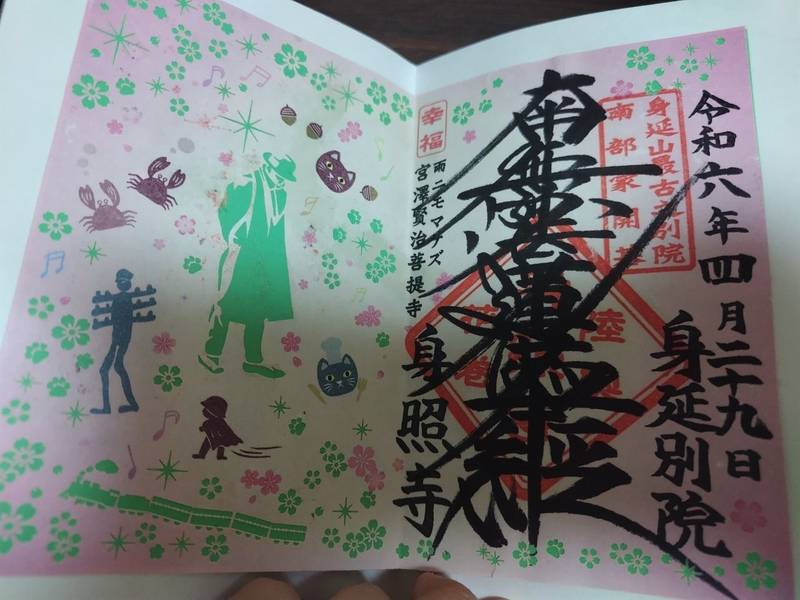 令和六年四月二十九日
身延別院
身延山最古之別院
南部家開基
南無妙法蓮華経
幸福
雨ニモマケズ
宮澤賢治菩提寺
身照寺